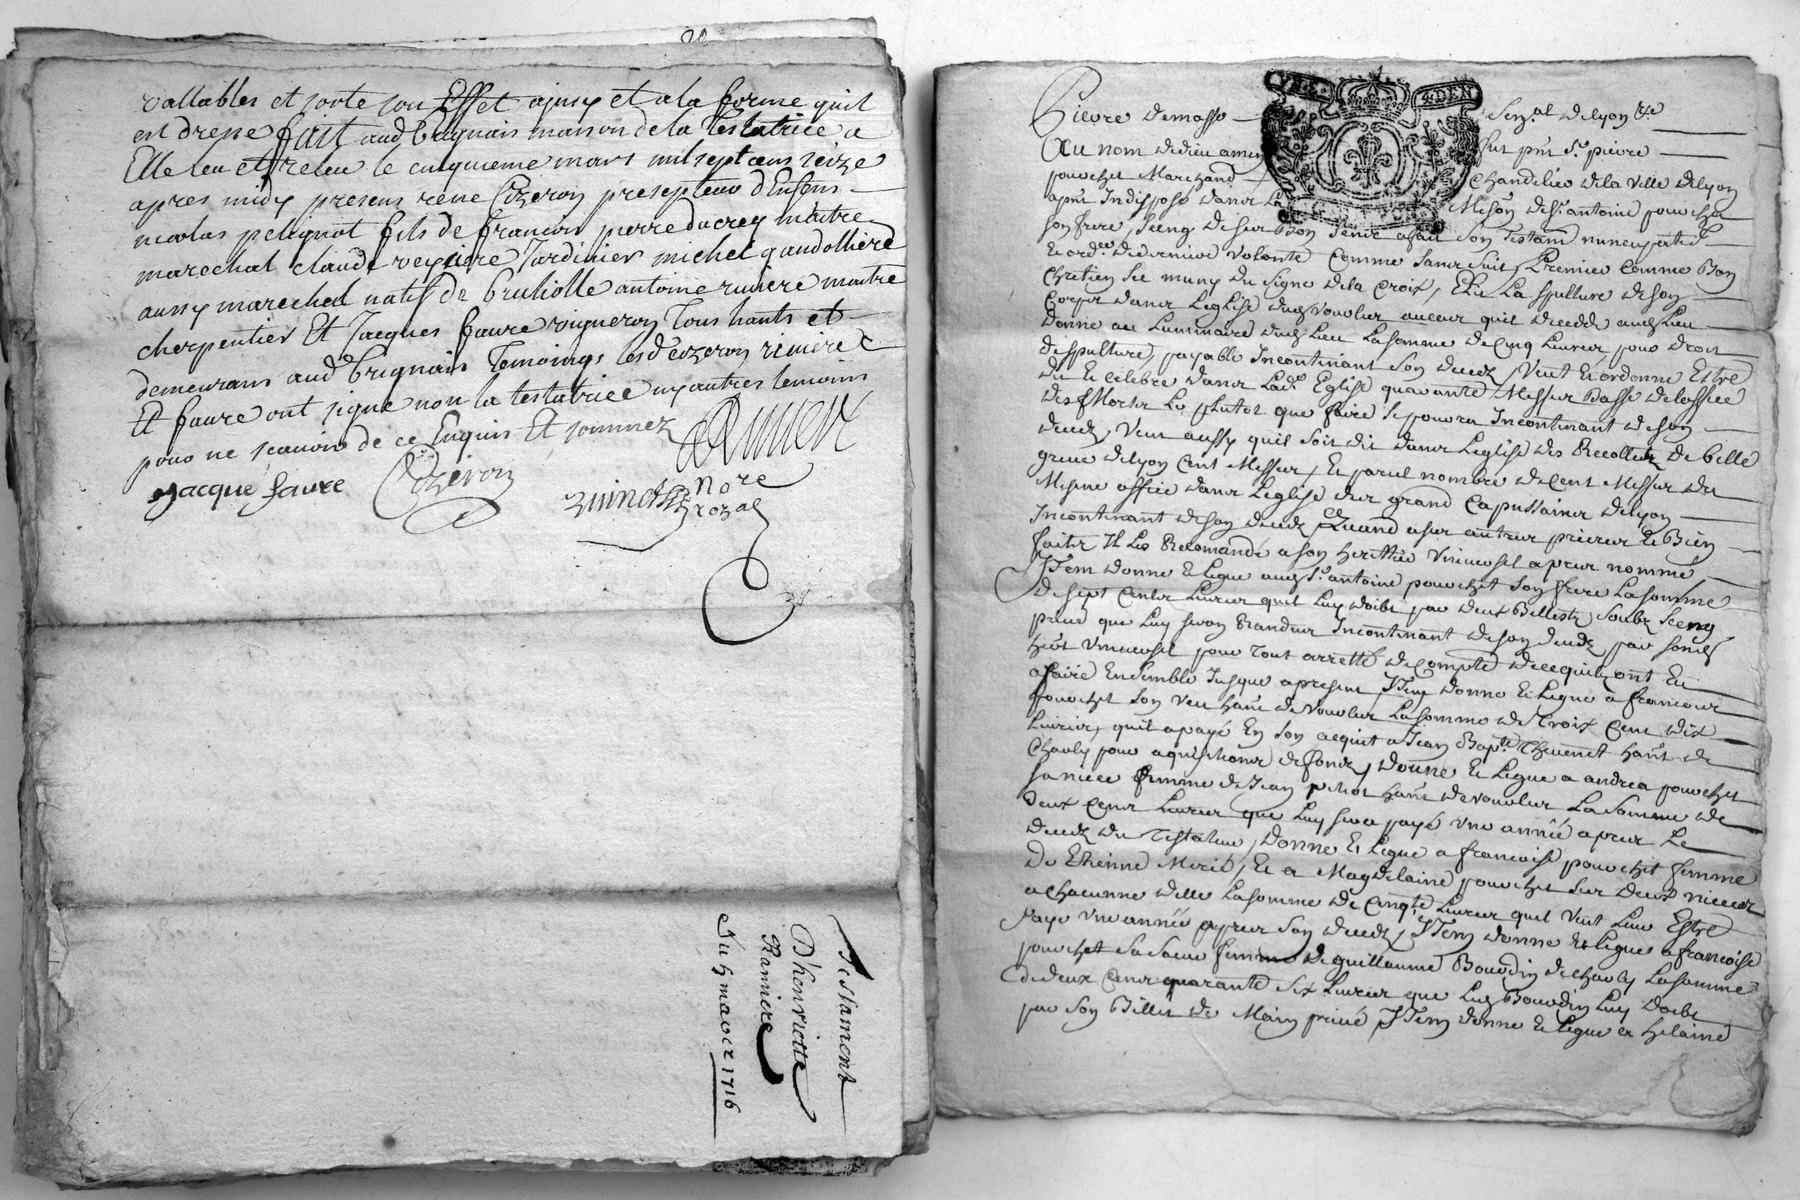 vallables et sorte son Effet ainsy et a la forme quil
est dressé fait aud brignais maison de la Testatrice a
Elle leu et releu le cinquieme mars mil sept cens seize
apres midy presens rene Cozeron presepteur d'Enfens
nicolas pelignot fils de francois pierre ducrey maitre
marechal claude veyriere Jardinier michel gaudolliere
aussy marechal natif de brulliolle antoine riviere maitre
cherpentier Et Jacques faure vigneron Tous hants et
demeurans aud brignais Temoings lesd cozeron riviere
Et faure ont signé non la testatrice ny autres temoins
pour ne scavoir de ce Enquis Et sommez
Jacque faure Cozeron Riviere
nore
royal
Testament
D'henriette
Banniere
du 5 mars 1716
Pierre demasso Sen.al de lyon
Au nom de dieu amen fut pnt Sr pierre
pourchet Marchand Chandelier de la Ville de lyon
Maison de Sr antoine pourchet
son frere, a fait son Testamt nuncupatif
et ordce de derniere volonté Comme sans suit, Premier Comme Bon
Chrétien s'est muny du signe de la Croix, Elit La spulture de son
Corps dans L'eglise
donne au Luminaire dud Lieu La somme de Cinq Livres, pour Droit
de spulture, payable Incontinant son deces, Veut et ordonne Estre
dit et celebre dans Lade Eglise quarante Messes Basse de loffice
des Morts Le plutot que faire se pourra Incontinant de son
deces, Veut aussy quil soit dit dans L'eglise des Recollets de belle
greve de lyon Cent Messes, Et pareil nombre de Cent Messes du
Mesme office dans L'eglise des grand Capussains de lyon
Incontinant de son deces Quand a ses autres prieres et Bien
faits Il Les Recomande a son herittier Universel apres nommé
Item donne et Legue aud Sr antoine pourchet son frere La somme
de sept Cents Livres quil Luy doibt par deux Billests soubz Seeng
privé que Luy seron Randues Incontinant de son deces, par son
hers Universel pour Tout arretté de Compte de ce quils ont Eu
afaire Ensemble Jusque a present, Item donne et Legue a francois
pourchet son veu hant de vourles La somme de Troix Cent dix
Livres, quil a payé En son acquit a Jean Bapte Thevenet hant de
Charly pour aquisitions de fonds, donne et Legue a andrea pourchet
sa niece femme de Jean pitiot hant de vourles La somme de
deux Cens Livres que Luy sera payé une année apres Le
deces du Testateur, Donne et Legue a francoise pourchet femme
de Etienne Meric, Et a Magdelaine pourchet ses deux nieces
a chacunne delle La somme de Cinqte Livres quil Veut Leur Estre
Paye une année apres son deces, Item donne et Legue a francoise
pourchet sa soeur femme de guillaume Bourdin de charly La somme
de deux Cens quarante six Livres que Led Bourdin Luy doibt
par son Billet de Main privé, Item donne et Legue a helaine